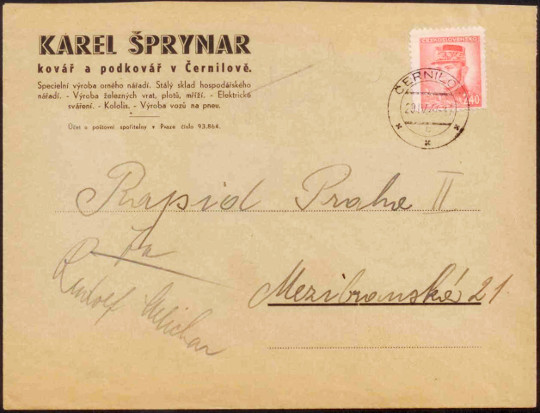 KAREL ŠPRYNAR
kovář a podkovář v Černilově.
Specielní výroba orného nářadí. Stálý sklad hospodářského
nářadí. - Výroba železných vrat, plotů, mříží. - Elektrické
sváření. - Kololis. - Výroba vozů na pneu.
Účet u poštovní spořitelny v Praze číslo 93.864.
ČESKOSLOVENSKO
2·40
ČERNILOV
Rapid Praha II
fa
Rudolf
Mezibranská 21